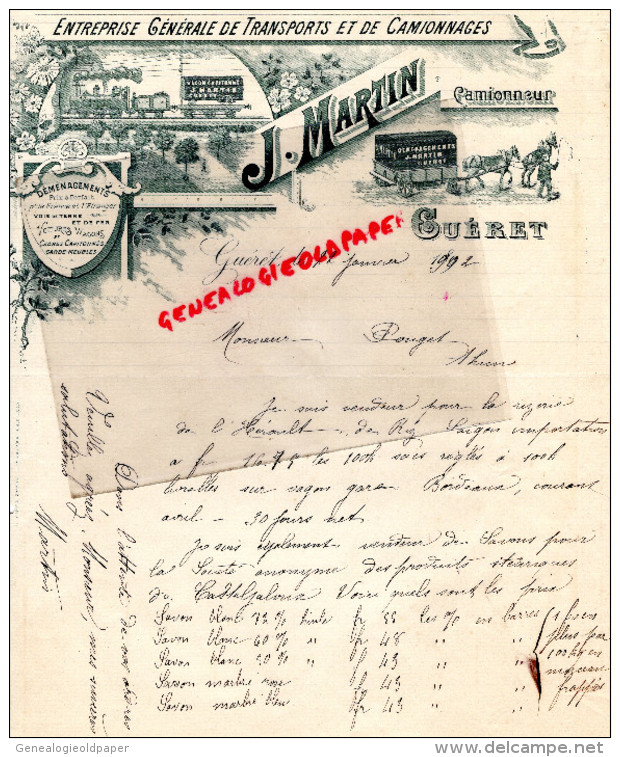 ENTREPRISE GÉNÉRALE DE TRANSPORTS ET DE CAMIONNAGES
J. MARTIN
Camionneur
WAGON CAPITONNÉ
J. MARTIN
GUÉRET
DÉMÉNAGEMENTS
J. MARTIN
GUÉRET
DÉMÉNAGEMENTS
Prix à Forfait
pr la France et l'Étranger
VOIE DE TERRE
ET DE FER
WAGONS
CADRES CAPITONNÉS
GARDE-MEUBLES
GUÉRET
Guéret, le janvier 1902
GENEALOGIEOLDPAPER
Monsieur Pouget
Ahun
Je suis vendeur pour la rizerie
de l'Hérault de Riz Saïgon importation
a fr 16.75 les 100k sacs réglés à 100k
livrables sur wagon gare Bordeaux, courant
avril - 30 jours net
Je suis également vendeur de Savons pour
la Société anonyme des produits stéariques
de Casteljaloux Voici quels sont les prix
Savon blanc 72 % huile fr 55 les % en barres
Savon blanc 60 % " fr 48 " "
Savon blanc 50 % " fr 43 " "
Savon marbré rose fr 43 " "
Savon marbré bleu fr 43 " "
1 fr en
plus par
100 k en
morceaux
frappés
Dans l'attente de vos ordres
Veuillez agréer, Monsieur, mes sincères
salutations
Martin
Genealogieoldpaper
www.delcampe.net